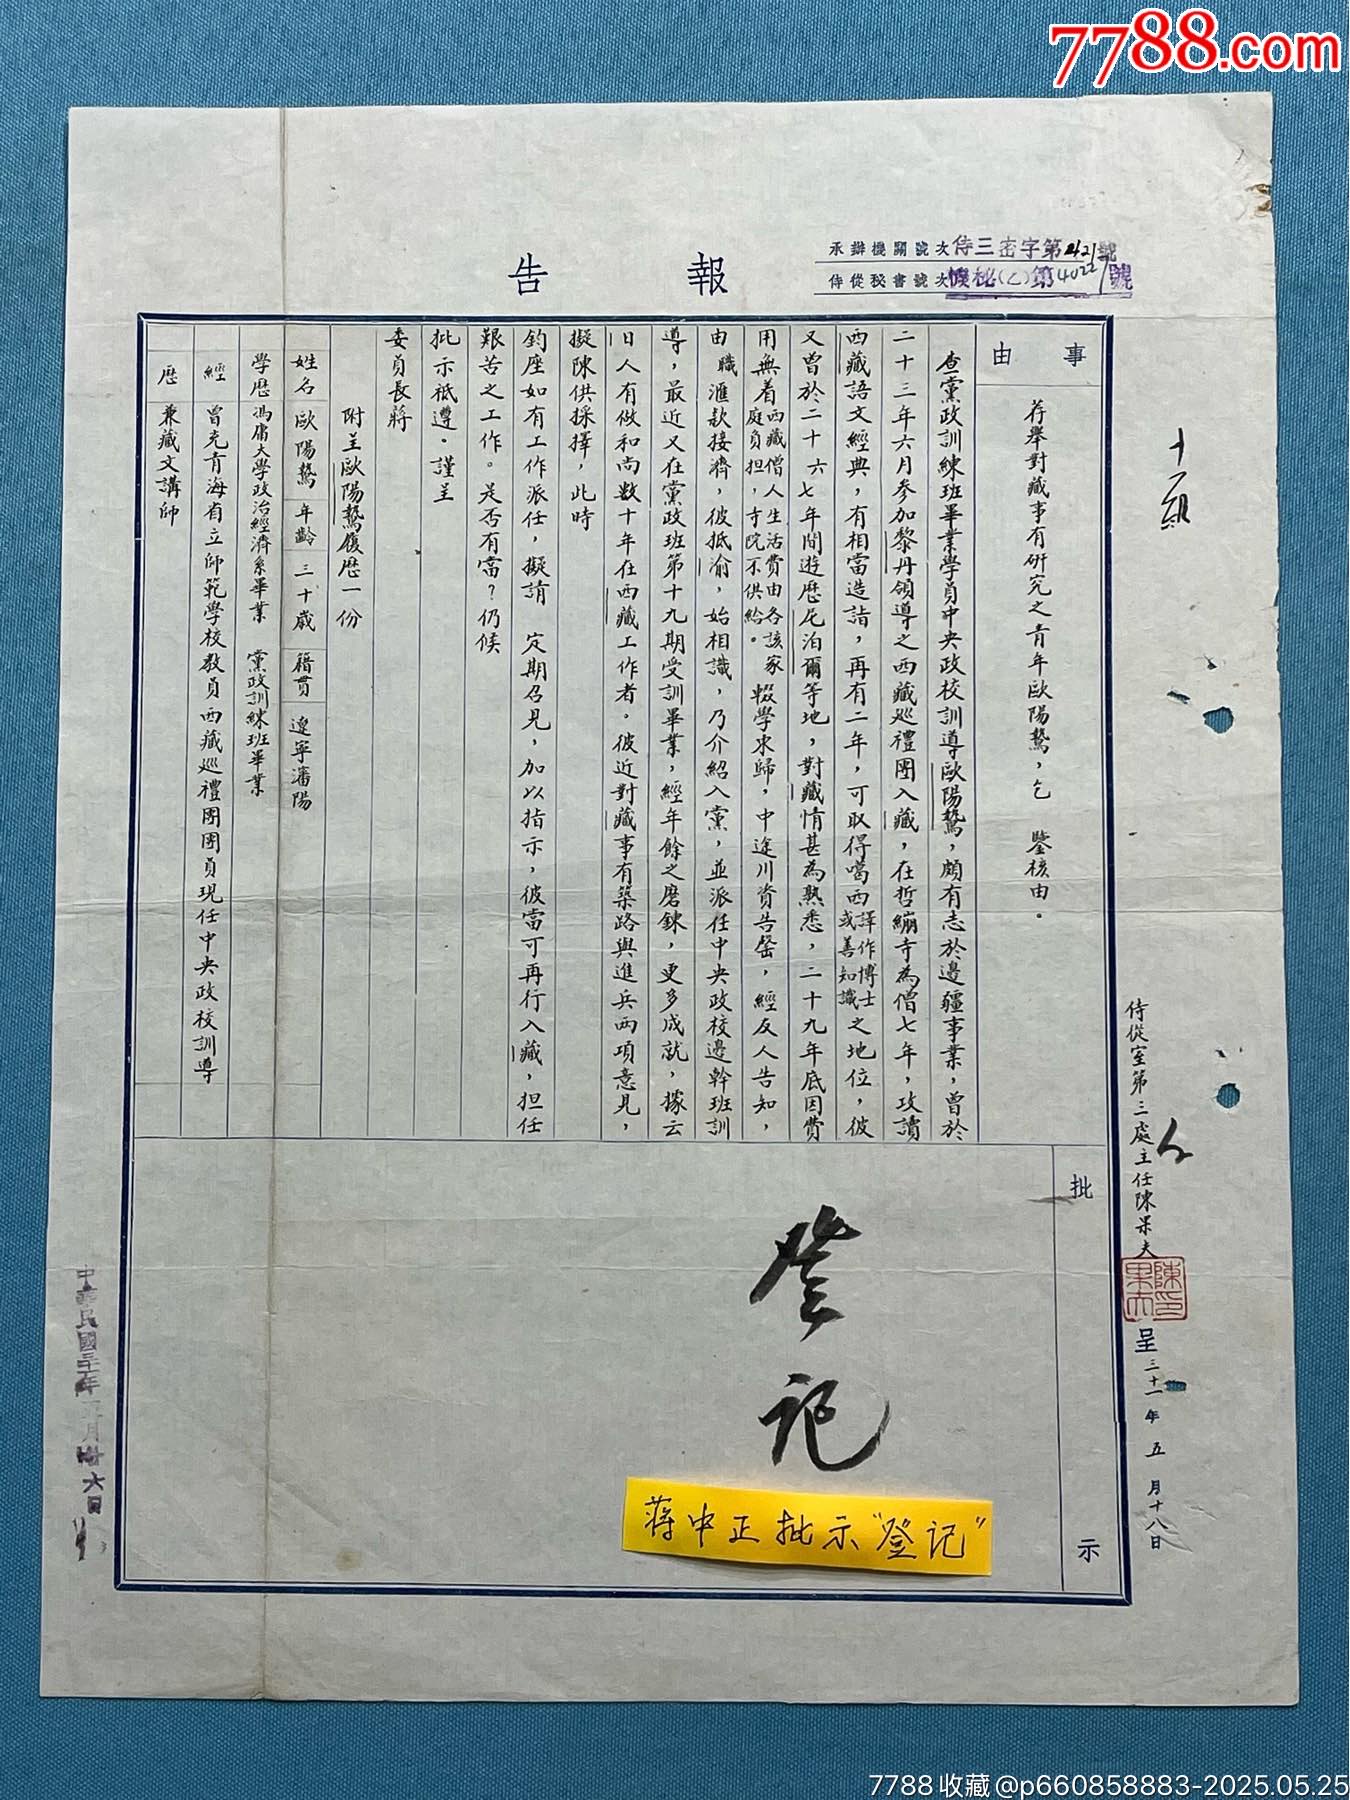 7788.com
報告
承辦機關號次侍三密字第2421號
侍從秘書號次機秘(乙)第4022號
事由
荐舉對藏事有研究之青年歐陽鷙，乞　鑒核由。
查黨政訓練班畢業學員中央政校訓導歐陽鷙，頗有志於邊疆事業，曾於
二十三年六月參加黎丹領導之西藏巡禮團入藏，在哲繃寺為僧七年，攻讀
西藏語文經典，有相當造詣，再有二年，可取得噶西譯作博士或善知識之地位，彼
又曾於二十六七年間遊歷尼泊爾等地，對藏情甚為熟悉，二十九年底因費
用無着西藏僧人生活費由各該家庭負担，寺院不供給。輟學東歸，中途川資告罄，經友人告知，
由職滙款接濟，彼抵渝，始相識，乃介紹入黨，並派任中央政校邊幹班訓
導，最近又在黨政班第十九期受訓畢業，經年餘之磨鍊，更多成就，據云
旧人有做和尚数十年在西藏工作者。彼近對藏事有築路與進兵兩項意見，
擬陳供採擇，此時
鈞座如有工作派任，擬請　定期召見，加以指示，彼當可再行入藏，担任
艱苦之工作。是否有當？仍候
批示祗遵。謹呈
委員長蔣
附呈歐陽鷙履歷一份
姓名　歐陽鷙　年齡　三十歲　籍貫　遼寧瀋陽
學歷　馮庸大學政治經濟系畢業　黨政訓練班畢業
經歷　曾充青海省立師範學校教員西藏巡禮團團員現任中央政校訓導
兼藏文講師
批示
登记
蒋中正批示"登记"
侍從室第三處主任陳果夫
陳果夫印
呈三十一年五月十八日
中華民國三十一年月廿六日
7788收藏@p660858883-2025.05.25